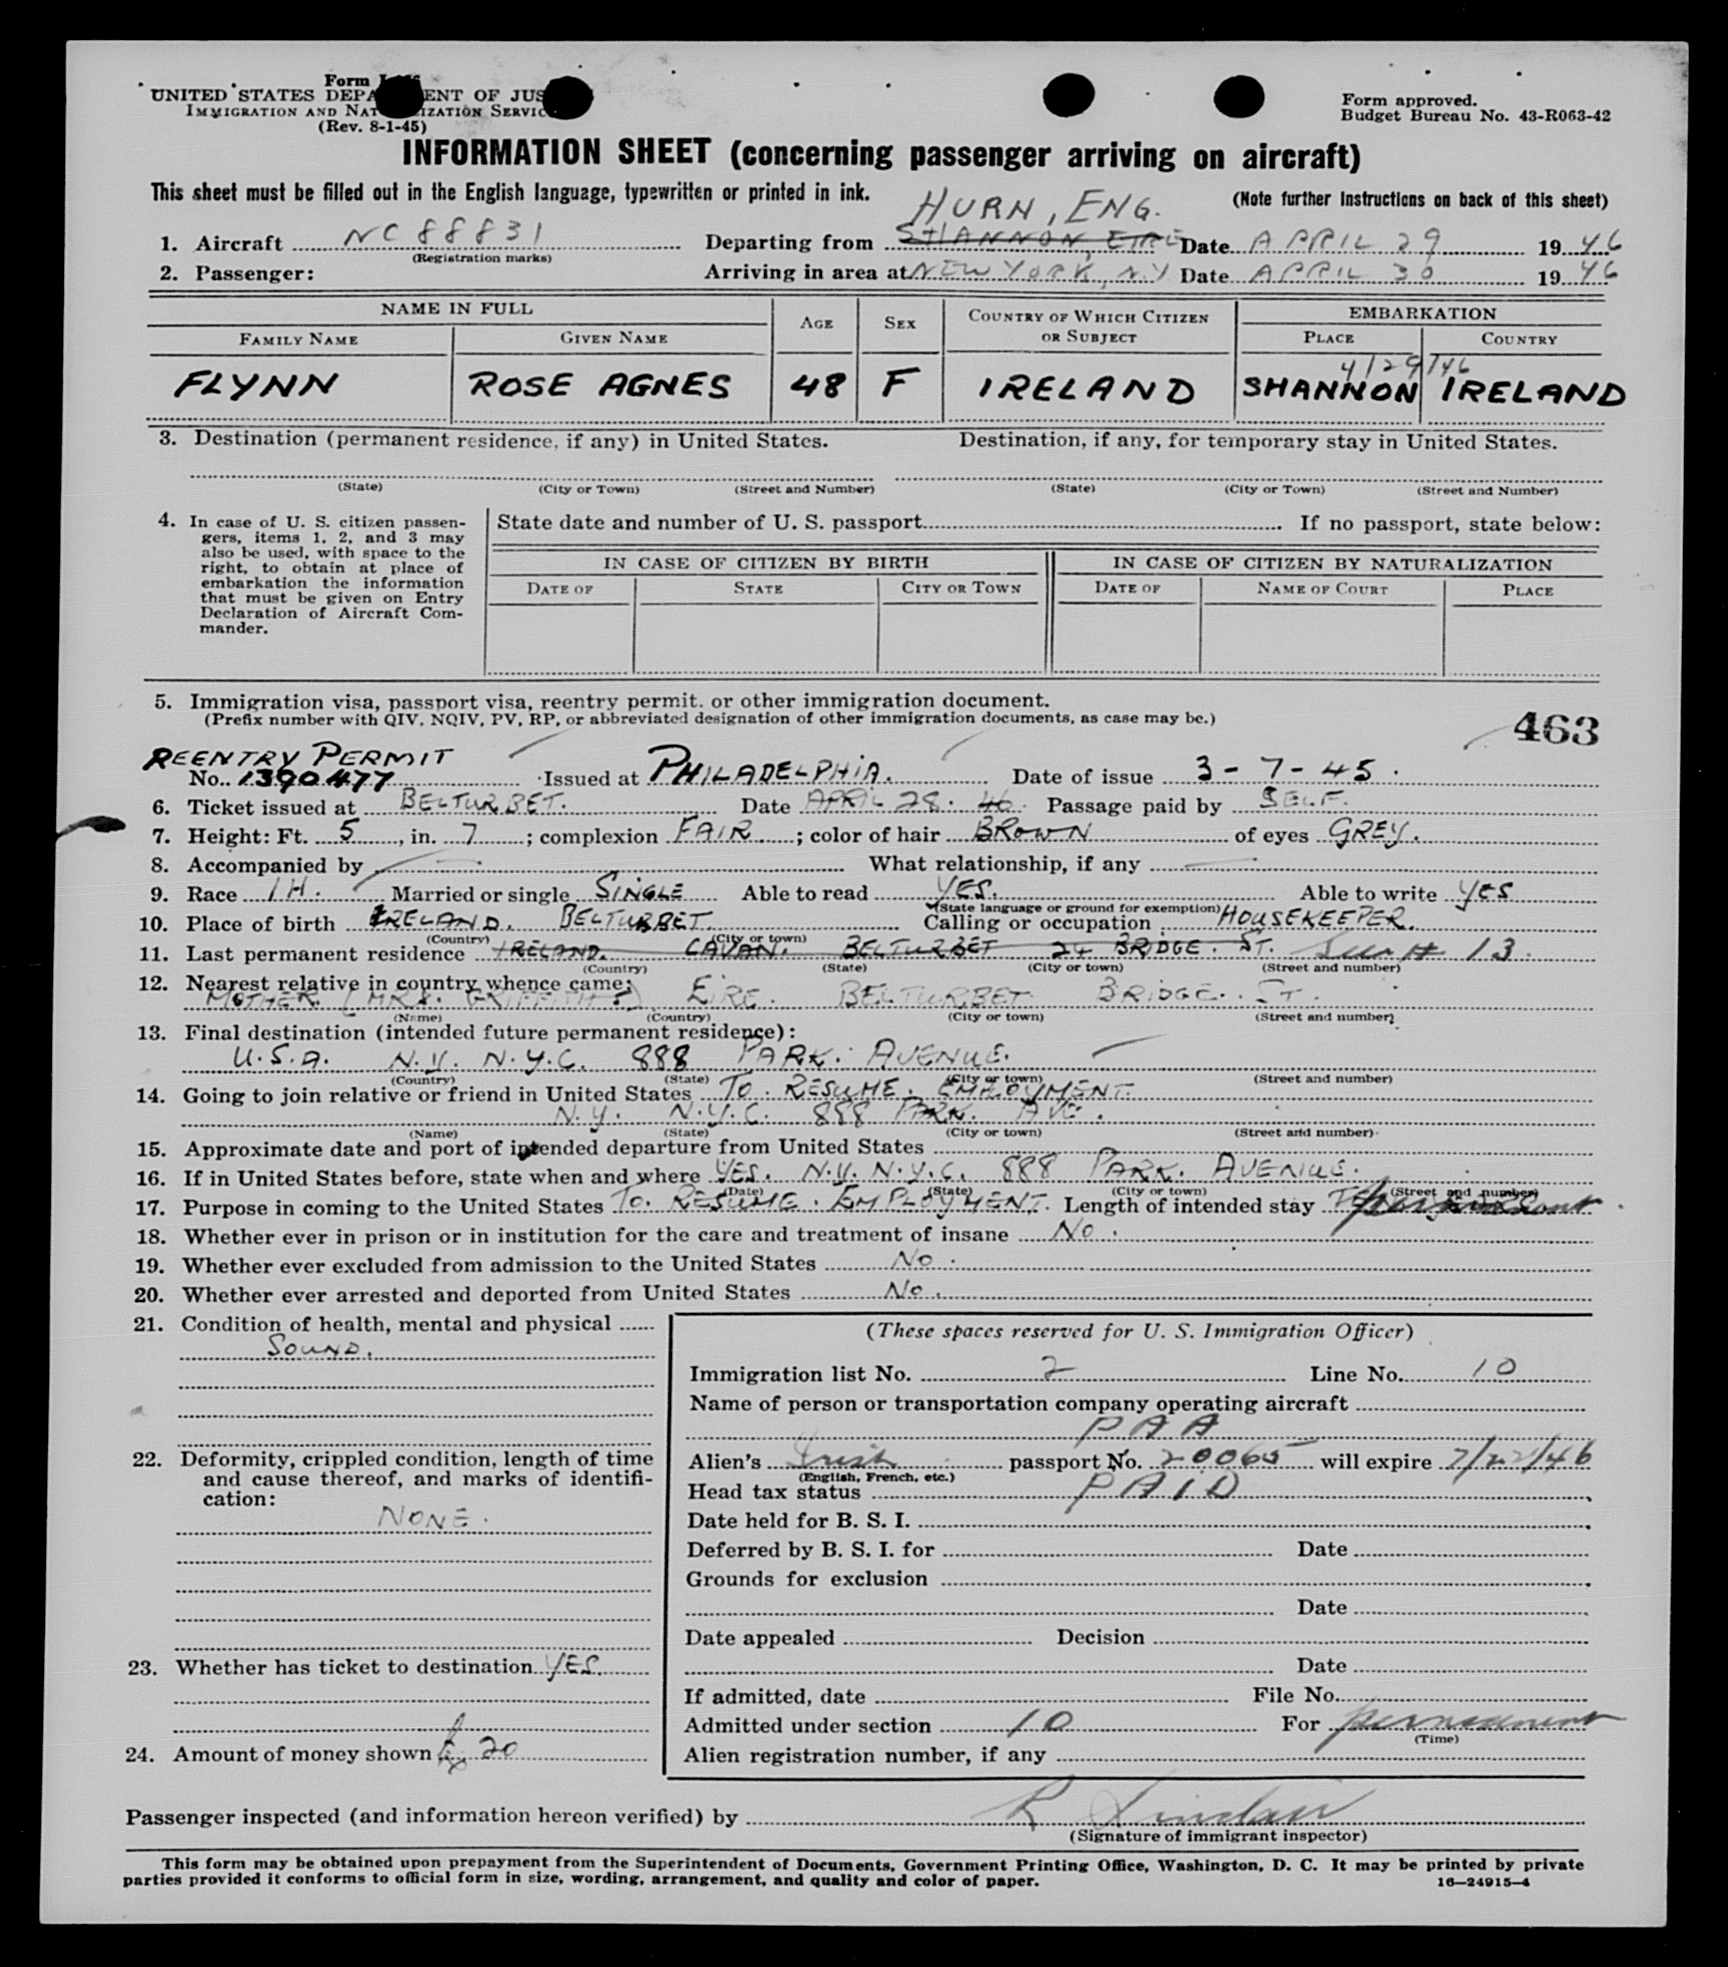 Form
UNITED STATES DEPA ENT OF JUS
IMMIGRATION AND NAT IZATION SERVIC
(Rev. 8-1-45)
Form approved.
Budget Bureau No. 43-R063-42
INFORMATION SHEET (concerning passenger arriving on aircraft)
This sheet must be filled out in the English language, typewritten or printed in ink.
(Note further instructions on back of this sheet)
HURN, ENG.
1. Aircraft NC 88831 Departing from SHANNON, EIRE Date APRIL 29 1946
(Registration marks)
2. Passenger: Arriving in area at NEW YORK, N.Y Date APRIL 30 1946
NAME IN FULL AGE SEX COUNTRY OF WHICH CITIZEN OR SUBJECT EMBARKATION
FAMILY NAME GIVEN NAME PLACE COUNTRY
4/29/46
FLYNN ROSE AGNES 48 F IRELAND SHANNON IRELAND
3. Destination (permanent residence, if any) in United States. Destination, if any, for temporary stay in United States.
(State) (City or Town) (Street and Number) (State) (City or Town) (Street and Number)
4. In case of U. S. citizen passengers, items 1, 2, and 3 may also be used, with space to the right, to obtain at place of embarkation the information that must be given on Entry Declaration of Aircraft Commander.
State date and number of U. S. passport If no passport, state below:
IN CASE OF CITIZEN BY BIRTH IN CASE OF CITIZEN BY NATURALIZATION
DATE OF STATE CITY OR TOWN DATE OF NAME OF COURT PLACE
5. Immigration visa, passport visa, reentry permit, or other immigration document.
(Prefix number with QIV, NQIV, PV, RP, or abbreviated designation of other immigration documents, as case may be.)
463
REENTRY PERMIT
No. 1390477 Issued at PHILADELPHIA. Date of issue 3-7-45.
6. Ticket issued at BELTURBET. Date APRIL 28. 46 Passage paid by SELF.
7. Height: Ft. 5, in. 7; complexion FAIR; color of hair BROWN of eyes GREY.
8. Accompanied by — What relationship, if any —
9. Race IH. Married or single SINGLE Able to read YES. Able to write YES
(State language or ground for exemption)
10. Place of birth IRELAND. BELTURBET. Calling or occupation HOUSEKEEPER.
(Country) (City or town)
11. Last permanent residence IRELAND. CAVAN. BELTURBET 24 BRIDGE. ST. See # 13.
(Country) (State) (City or town) (Street and number)
12. Nearest relative in country whence came:
MOTHER (MRS. GRIFFITHS) EIRE. BELTURBET. BRIDGE. ST.
(Name) (Country) (City or town) (Street and number)
13. Final destination (intended future permanent residence):
U.S.A. N.Y. N.Y.C. 888 PARK. AVENUE.
(Country) (State) (City or town) (Street and number)
14. Going to join relative or friend in United States TO. RESUME. EMPLOYMENT.
N.Y. N.Y.C. 888 PARK. AVE.
(Name) (State) (City or town) (Street and number)
15. Approximate date and port of intended departure from United States
16. If in United States before, state when and where YES. N.Y. N.Y.C. 888 PARK. AVENUE.
(Date) (State) (City or town) (Street and number)
17. Purpose in coming to the United States TO. RESUME. EMPLOYMENT. Length of intended stay permanent
18. Whether ever in prison or in institution for the care and treatment of insane NO.
19. Whether ever excluded from admission to the United States NO.
20. Whether ever arrested and deported from United States NO.
21. Condition of health, mental and physical
SOUND.
22. Deformity, crippled condition, length of time and cause thereof, and marks of identification:
NONE.
23. Whether has ticket to destination YES.
24. Amount of money shown £ 20
(These spaces reserved for U. S. Immigration Officer)
Immigration list No. 2 Line No. 10
Name of person or transportation company operating aircraft
PAA
Alien's Irish passport No. 20065 will expire 7/22/46
(English, French, etc.)
Head tax status PAID
Date held for B. S. I.
Deferred by B. S. I. for Date
Grounds for exclusion
Date
Date appealed Decision
Date
If admitted, date File No.
Admitted under section 10 For permanent
(Time)
Alien registration number, if any
Passenger inspected (and information hereon verified) by R Sinclair
(Signature of immigrant inspector)
This form may be obtained upon prepayment from the Superintendent of Documents, Government Printing Office, Washington, D. C. It may be printed by private
parties provided it conforms to official form in size, wording, arrangement, and quality and color of paper. 16—24915-4